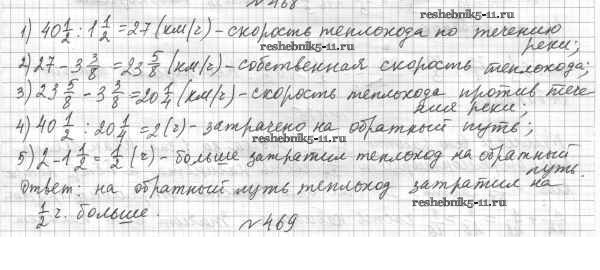 №468
1) 40 1/2 : 1 1/2 = 27 (км/ч) - скорость теплохода по течению
reshebnik5-11.ru реки;
2) 27 - 3 3/8 = 23 5/8 (км/ч) - собственная скорость теплохода;
3) 23 5/8 - 3 3/8 = 20 1/4 (км/ч) - скорость теплохода против тече-
reshebnik5-11.ru ния реки;
4) 40 1/2 : 20 1/4 = 2 (ч) - затрачено на обратный путь;
5) 2 - 1 1/2 = 1/2 (ч) - больше затратил теплоход на обратный
reshebnik5-11.ru путь.
Ответ: на обратный путь теплоход затратил на
1/2 ч. больше. reshebnik5-11.ru
№469